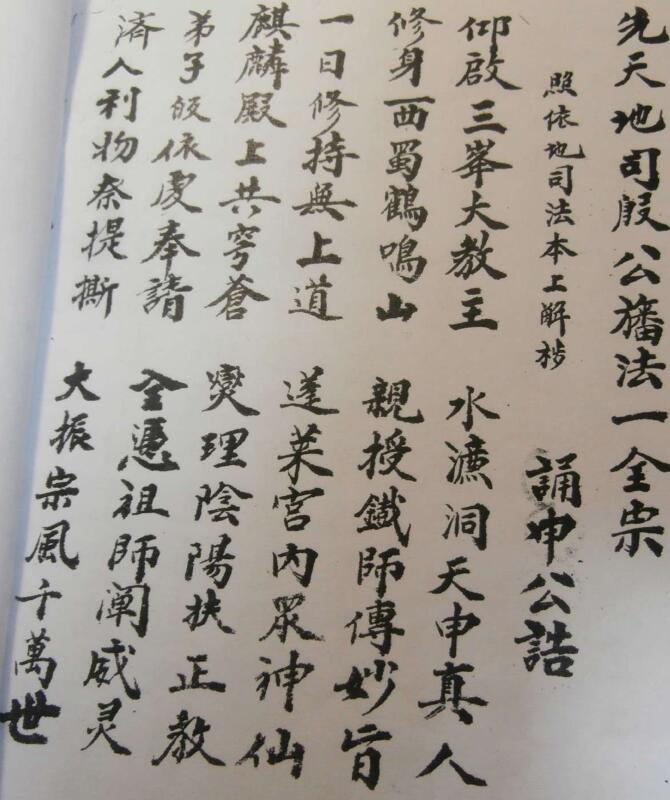 先天地司殷公旛法一全宗
照依地司法本上解抄
誦申公誥
仰啟三峯大教主 水濂洞天申真人
修身西蜀鶴鳴山 親授鐵師傳妙旨
一日修持無上道 蓬萊宮內眾神仙
麒麟殿上共穹蒼 燮理陰陽扶正教
弟子皈依虔奉請 全憑祖師闡威灵
濟人利物奈提撕 大振宗風千萬世